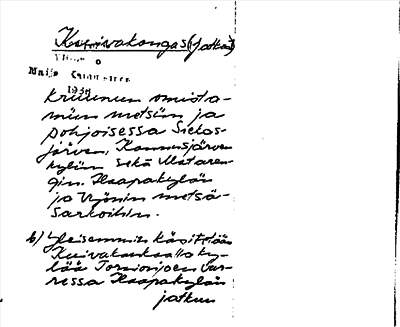 Kuivakangas (jatkoa)
1938
kruunun omista-
miin metsiin ja
pohjoisessa Siekas-
järven, Kannusjärven
kyliin sekä Mataren-
gin. Haapakylän
ja metsä-
sarkoihin.
b) Yleisemmin käsitetään
Kuivakankaalla ky-
lää Tornionjoen var-
ressa Haapakylän
jatkuu